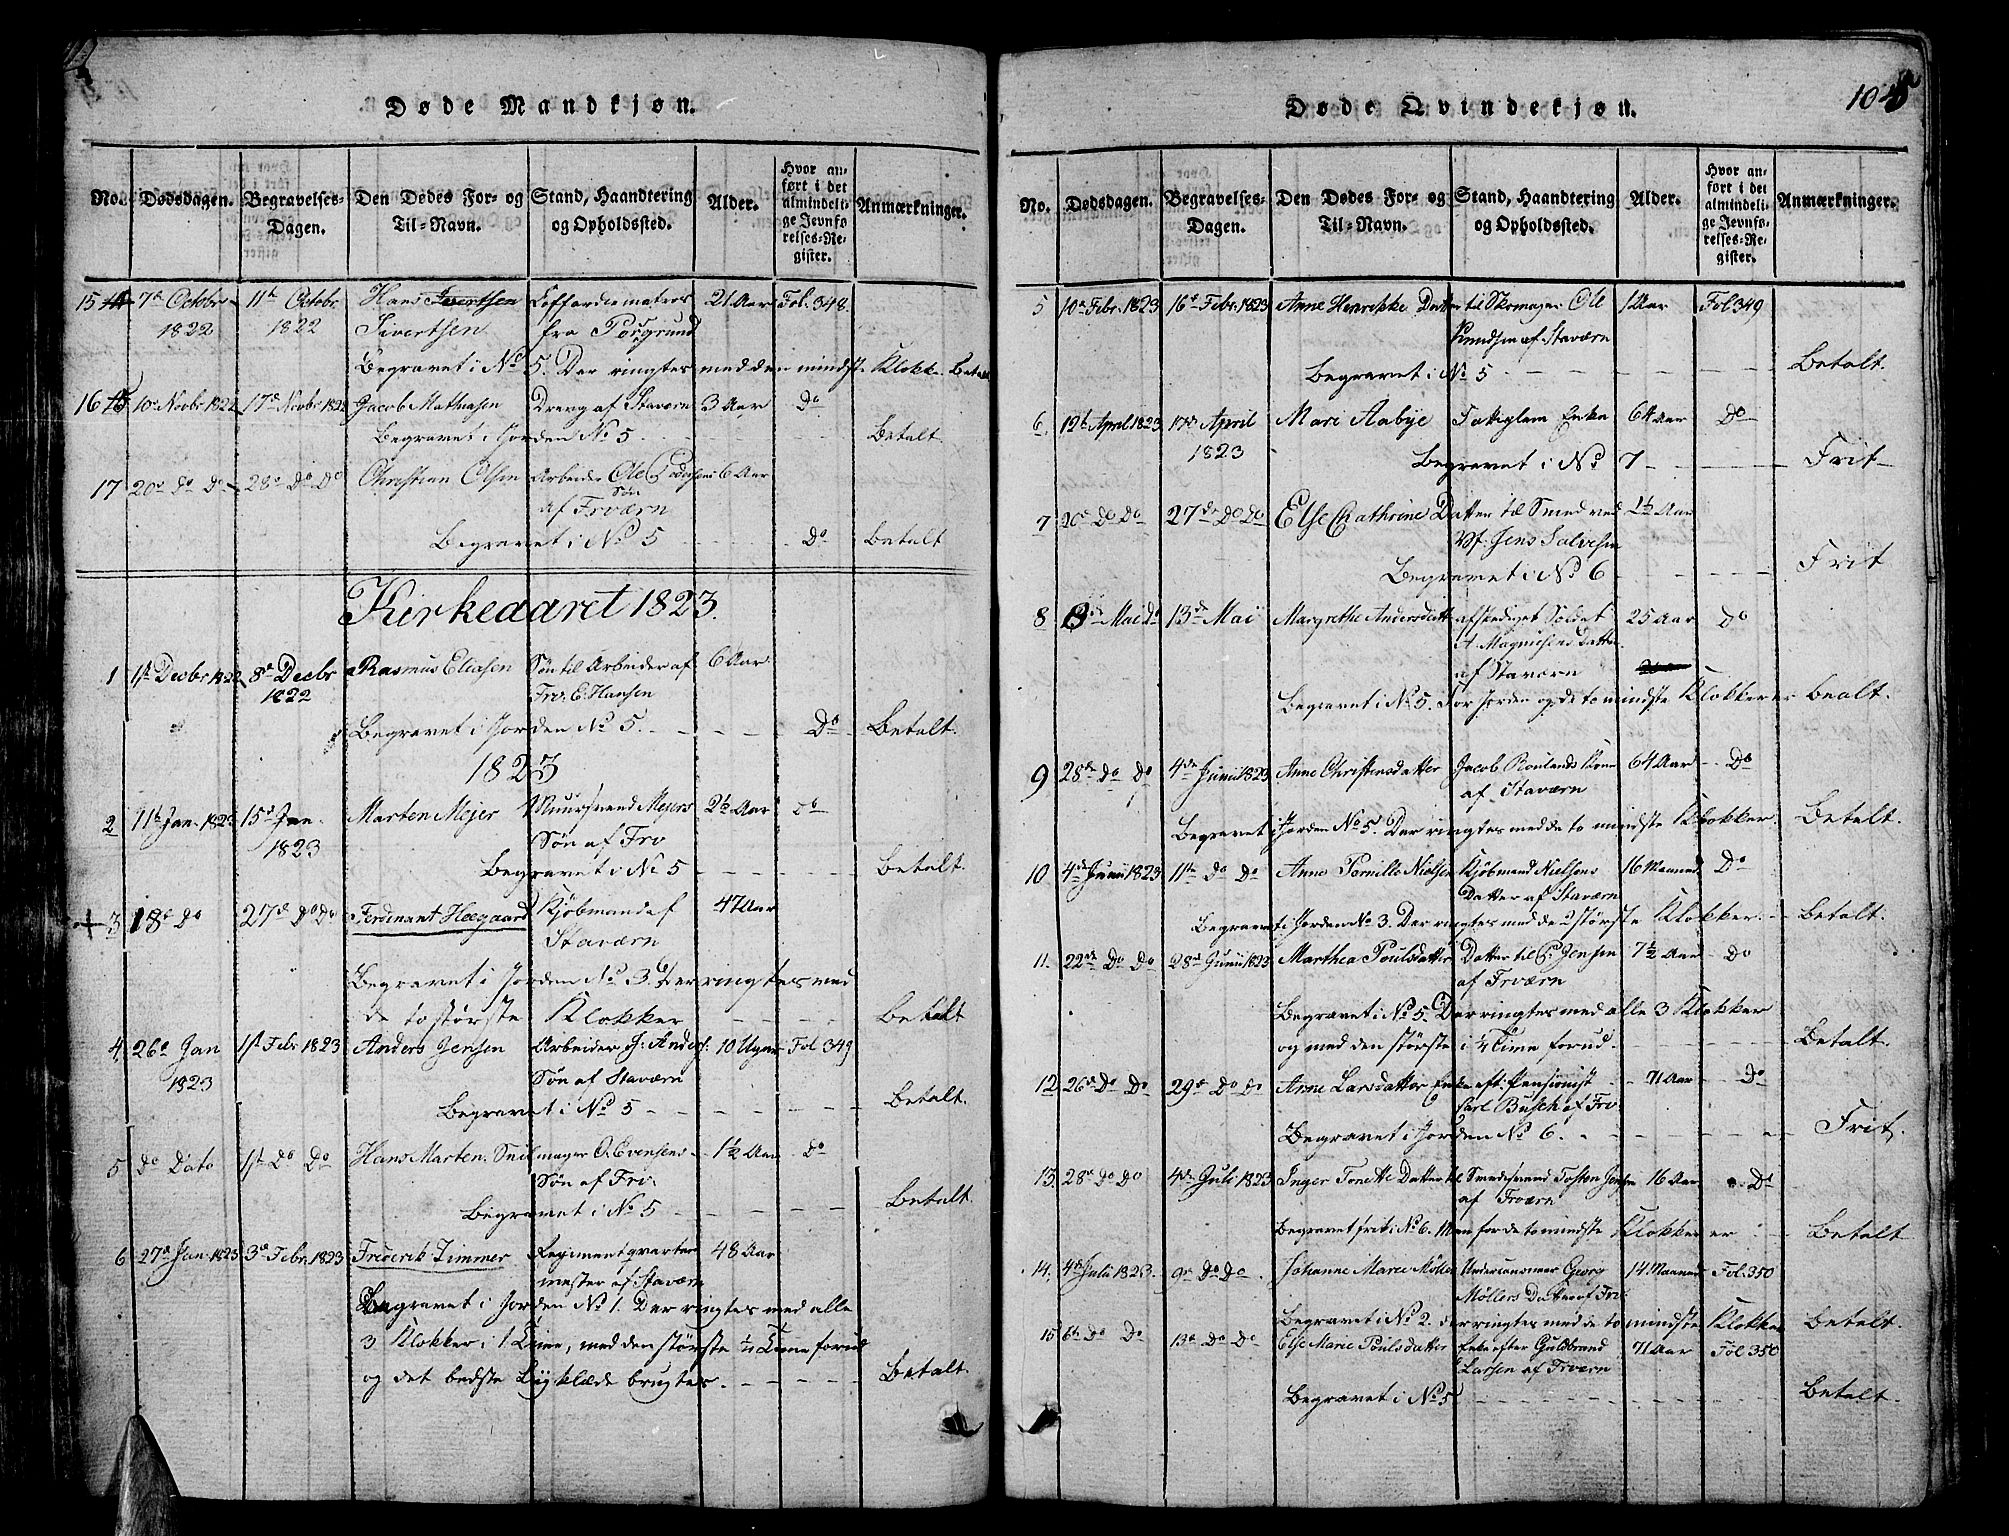 Døde Mandkjøn.
No. Dødsdagen. Begravelses-Dagen. Den Dødes For- og Til-Navn. Stand, Haandtering og Opholdssted. Alder. Hvor anført i det almindelige Jevnførelses-Register. Anmærkninger.
15 7de Octobr 1822 11te Octobr 1822 Hans Sivertsen Coffardiematros fra Porsgrund 21 Aar Fol. 348.
Begravet i No 5. Der ringtes med den mindste Klokke. Betalt
16 10de Novbr 1822 17de Novbr 1822 Jacob Mathiasen Dreng af Staværn 3 Aar Do
Begravet i Jorden No 5 Betalt
17 20de Do Do 28de Do Do Christian Olsen Arbeider Ole Pedersens Søn af Frværn 6 Aar
Begravet i No 5 Do Betalt
Kirkeaaret 1823.
1 1ste Decbr 1822 8de Decbr 1822 Rasmus Eliasen Søn til Arbeider af Frv. E. Hansen 6 Aar
Begravet i Jorden No 5. Do Betalt.
1823
2 11te Jan. 1823 15de Jan. 1823 Marten Mejer Muursvend Mejers Søn af Frv 2½ Aar Do
Begravet i No 5 Betalt.
3 18de Do 27de Do Do Ferdinant Heegaard Kjøbmand af Staværn 47 Aar
Begravet i Jorden No 3. Der ringtes med
de to største Klokker Betalt
4 26de Jan 1823 1ste Febr 1823 Anders Jensen Arbeider J. Anders. Søn af Staværn 10 Uger Fol 349
Begravet i No 5 Betalt.
5 Do Dato 1ste Do Do Hans Marten Seilmager O. Evensens Søn af Frv. 1½ Aar Do
Begravet i No 5 Betalt
6 27de Jan. 1823 3de Febr. 1823 Frederik Zimmer Regimentqvartermester af Staværn 48 Aar
Begravet i Jorden No 1. Der ringtes med alle
3 Klokker i 1 Time, med den største ½ Time forud
og det bedste Ligklæde brugtes. Betalt.
Døde Qvindekjøn. 105
No. Dødsdagen. Begravelses-Dagen. Den Dødes For- og Til-Navn. Stand, Haandtering og Opholdssted. Alder. Hvor anført i det almindelige Jevnførelses-Register. Anmærkninger.
5 10de Febr. 1823 16de Febr. 1823 Anne Henrikke Datter til Skomager Ole Knudsen af Staværn 1 Aar Fol 349
Begravet i No 5 Betalt.
6. 12te April 1823 17de April 1823 Mari Aabye Fattiglem Enke 64 Aar Do
Begravet i No 7 Frit
7 20de Do Do 27de Do Do Else Cathrine Datter til Smed ved Vf. Jens Salvesen 1½ Aar
Begravet i No 6 Frit
8 8de Mai Do 13de Mai Margrethe Andersdatt afskediget Soldat A. Magniesens Datter af Staværn 25 Aar Do
Begravet i No 5. For Jorden og de to mindste Klokker er bealt.
9 28de Do Do 4de Junii 1823 Anne Christensdatter Jacob Roulands Kone af Staværn 64 Aar Do
Begravet i Jorden No 5. Der ringtes med de to mindste Klokker. Betalt.
10 4de Junii 1823 11te Do Do Anne Pernille Nielsen Kjøbmand Nielsens Datter af Staværn 16 Maaned Do
Begravet i Jorden No 3. Der ringtes med de 2 største Klokker. Betalt.
11. 22de Do Do 28de Junii 1823 Marthea Poulsdatter Datter til P. Jensen af Frværn 7½ Aar Do
Begravet i No 5. Der ringtes med alle 3 Klokker
og med den største i ½ Time forud. Betalt.
12 26de Do Do 29de Do Do Anne Larsdatter Enke eft. Pensionist Carl Busch af Frv. 71 Aar Do
Begravet i Jorden No 6. Frit.
13. 28de Do Do 4de Juli 1823 Inger Tonette Datter til Smedesvend Tosten Jensen af Frværn 16 Aar Do
Begravet frit i No 6. Men for de to mindste Klokker er Betalt
14. 4de Julii 1823. 9de Do Do. Johanne Marie Møller Underkanoneer Georg Møllers Datter af Frv. 14 Maaned Fol. 350
Begravet i No 2. der ringtes med de to mindste Klokker Betalt.
15 6te Do Do 13de Do Do Else Marie Poulsdatter Enke efter Guldbrand Larsen af Frværn 71 Aar Fol 350
Begravet i No 5 Betalt.